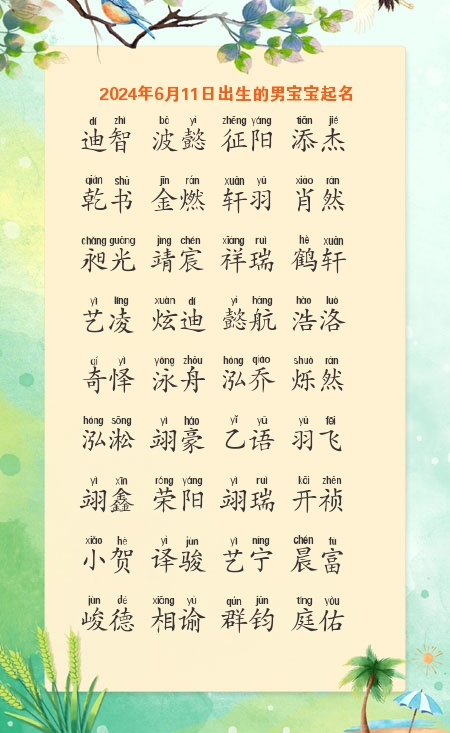 2024年6月11日出生的男宝宝起名
dí zhì bō yì zhēng yáng tiān jié
迪智 波懿 征阳 添杰
qián shū jīn rán xuān yǔ xiào rán
乾书 金燃 轩羽 肖然
chǎng guāng jìng chén xiáng ruì hè xuān
昶光 靖宸 祥瑞 鹤轩
yì líng xuàn dí yì háng hào luò
艺凌 炫迪 懿航 浩洛
qí yì yǒng zhōu hóng qiáo shuò rán
奇怿 泳舟 泓乔 烁然
hóng sōng yì háo yǐ yǔ yǔ fēi
泓淞 翊豪 乙语 羽飞
yì xīn róng yáng yì ruì kāi zhēn
翊鑫 荣阳 翊瑞 开祯
xiǎo hè yì jùn yì níng chén fù
小贺 译骏 艺宁 晨富
jùn dé xiāng yù qún jūn tíng yòu
峻德 相谕 群钧 庭佑